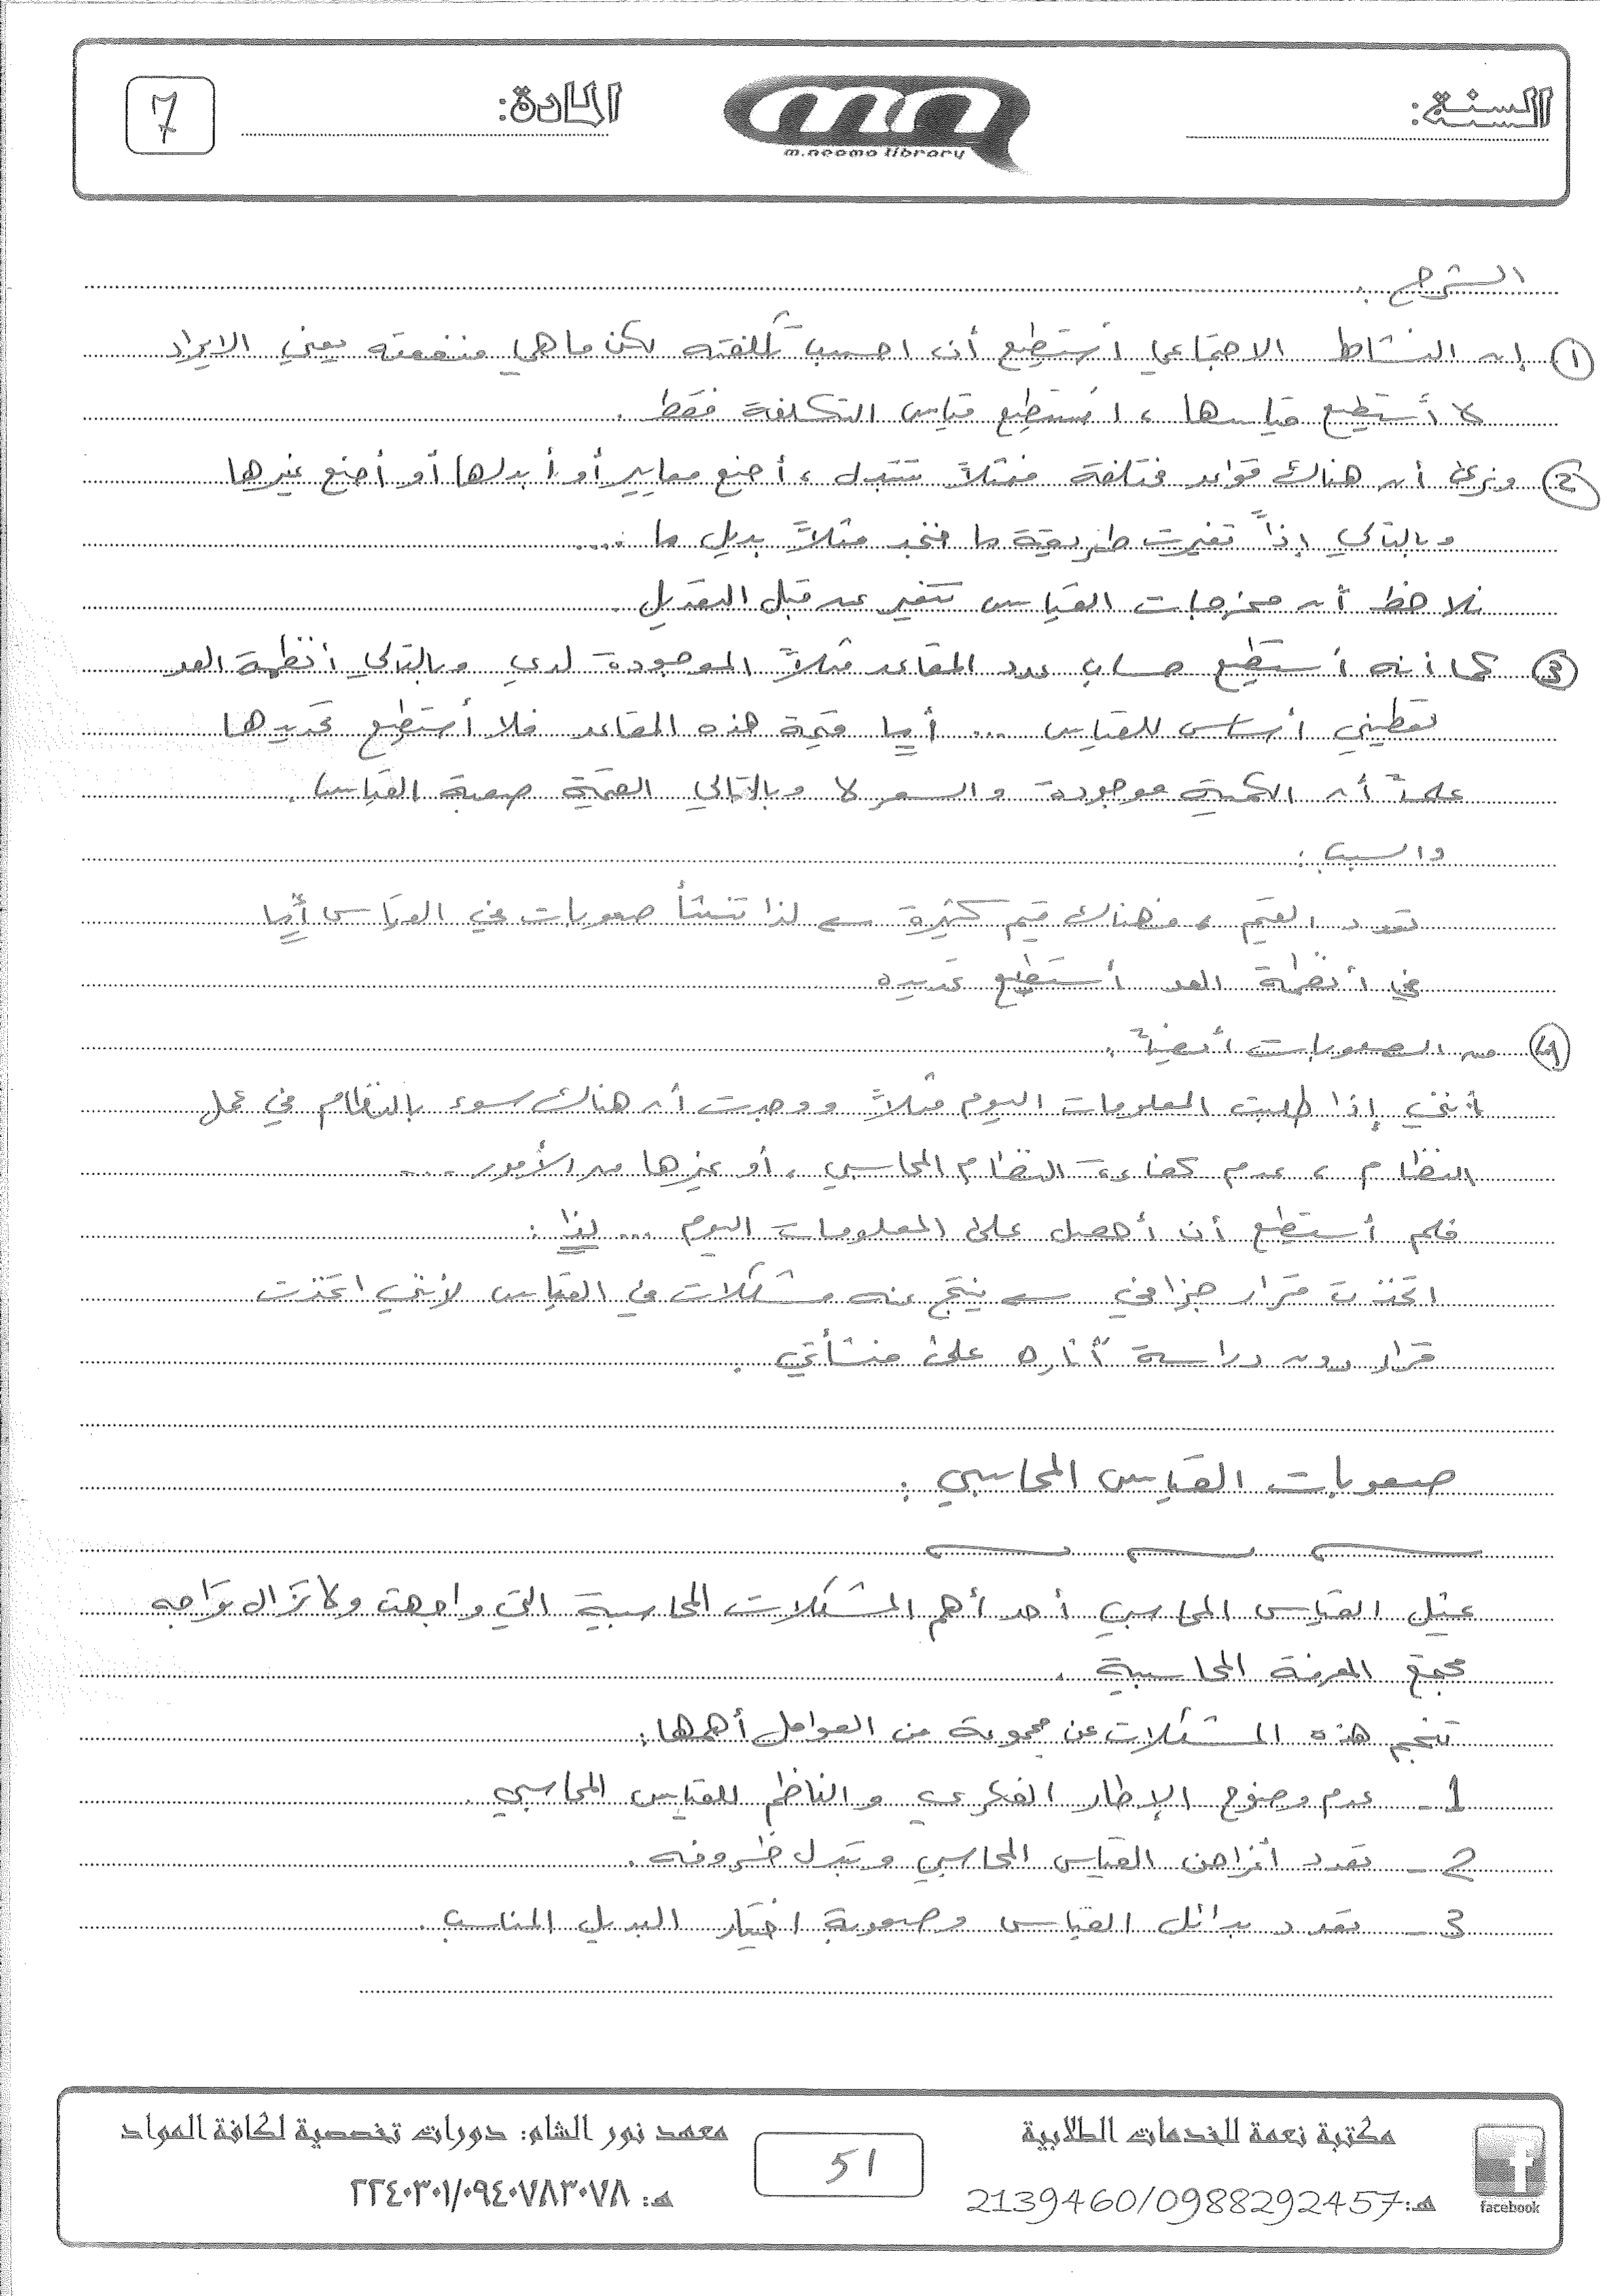 السنة:
المادة:
7
m.neama library
الشرح:
① إن النشاط الاجتماعي أستطيع أن احسب تكلفته لكن ما هي منفعته يعني الايراد
لا أستطيع قياسها ، استطيع قياس التكلفة فقط .
② ونرى أن هناك قواعد مختلفة فمثلاً تتبدل ، أضع معايير أو أبدلها أو أضع غيرها
وبالتالي إذاً تغيرت طريقة ما فنجد مثلاً بديل ما ....
نلاحظ أن مخرجات القياس تتغير عن قبل التعديل .
③ كما أنه أستطيع حساب عدد المقاعد مثلاً الموجودة لدي وبالتالي أنظمة العد
تعطيني أساس للقياس ... أما قيمة هذه المقاعد فلا أستطيع تحديدها
علماً أن الكمية موجودة والسعر لا وبالتالي القيمة صعبة القياس .
والسبب :
تعدد القيم ، فهناك قيم كثيرة ← لذا تنشأ صعوبات في القياس أما
في أنظمة العد أستطيع تحديده
④ من الصعوبات أيضاً .
أنني إذا طلبت المعلومات اليوم مثلاً ووجدت أن هناك سوء بالنظام في عمل
النظام ، عدم كفاءة النظام المحاسبي ، أو غيرها من الأمور ....
فلم أستطع أن أحصل على المعلومات اليوم ... لذا :
اتخذت قرار جزافي ← ينتج عنه مشكلات في القياس لأنني اتخذت
قرار دون دراسة آثاره على منشأتي .
صعوبات القياس المحاسبي :
يمثل القياس المحاسبي أحد أهم المشكلات المحاسبية التي واجهت ولا تزال تواجه
مجمع المعرفة المحاسبية .
تنجم هذه المشكلات عن مجموعة من العوامل أهمها :
1- عدم وضوح الإطار الفكري والناظم للقياس المحاسبي .
2- تعدد أغراض القياس المحاسبي وتبدل ظروفه .
3- تعدد بدائل القياس وصعوبة اختيار البديل المناسب .
مكتبة نعمة للخدمات الطلابية
هـ: 2139460/0988292457
facebook
51
معهد نور الشام: دورات تخصصية لكافة المواد
هـ: ٢٢٤٠٣٠١/٠٩٤٠٧٨٣٠٧٨